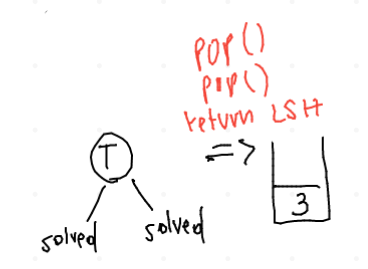 pop()
pop()
return LSH
T
=>
3
solved
solved